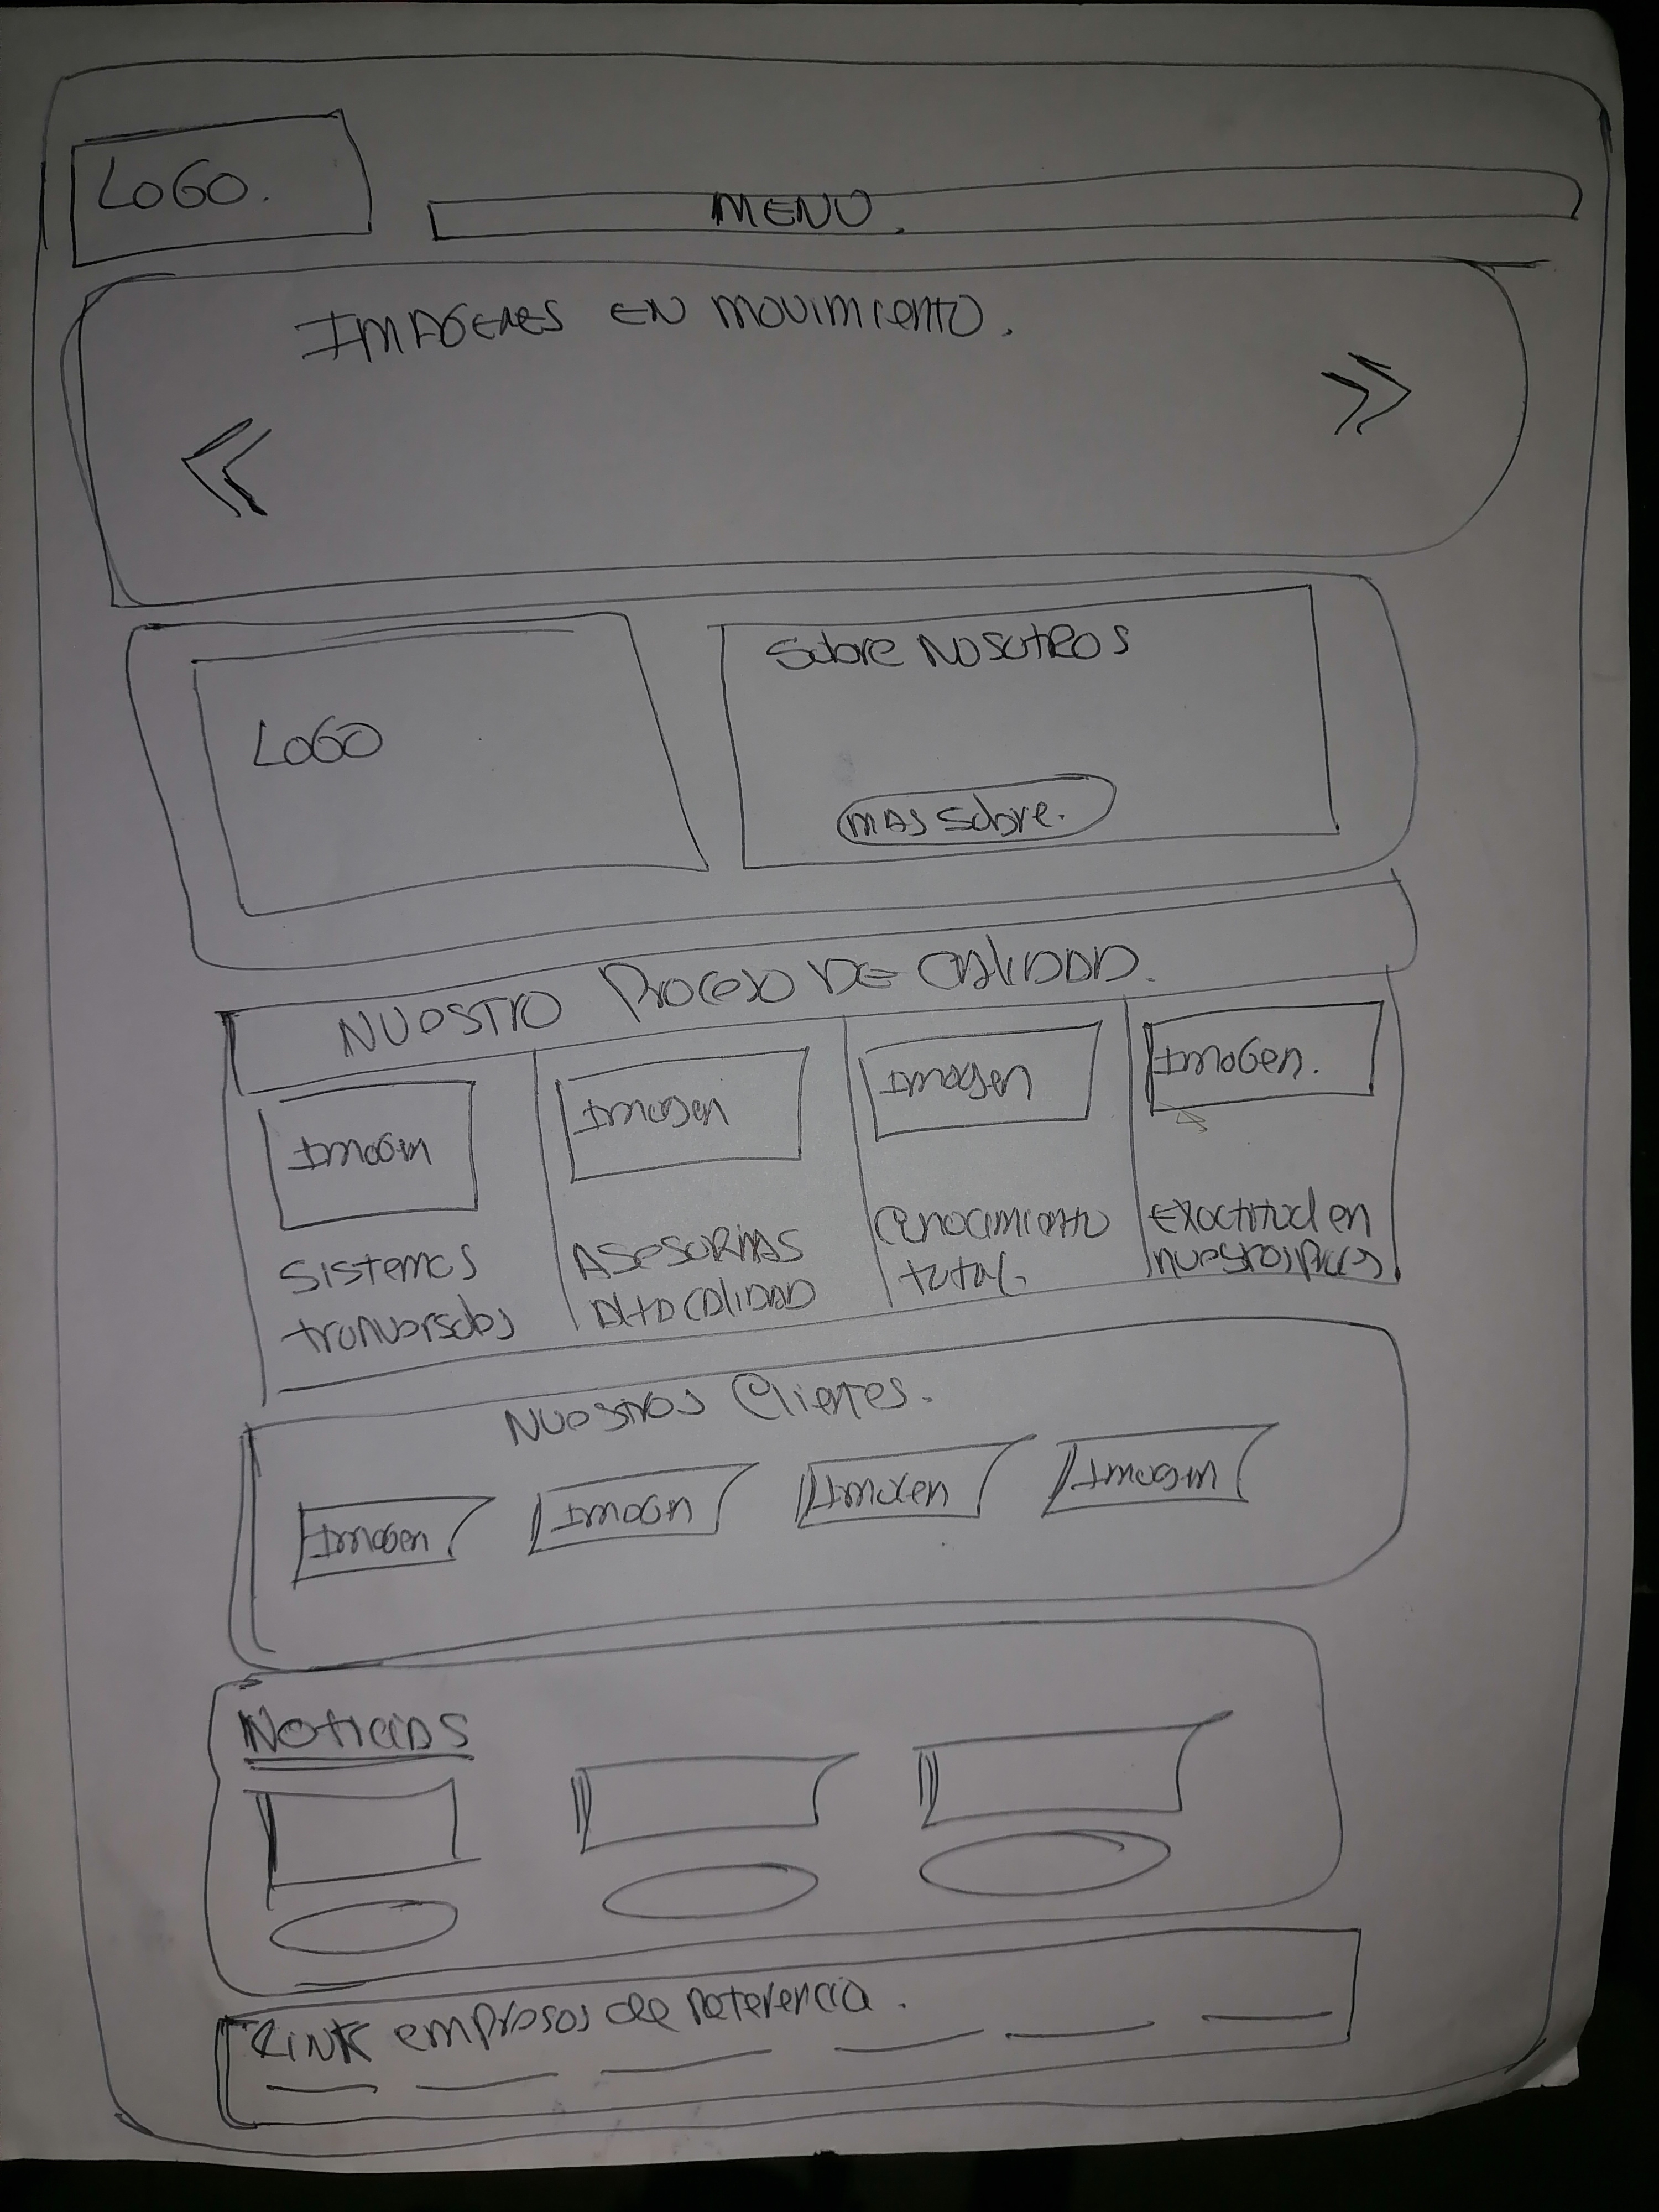 LOGO.
MENU.
IMAGENES EN MOVIMIENTO.
LOGO
Sobre NOSOTROS
MAS Sobre.
NUESTRO PROCESO DE CALIDAD.
Imagen
Imagen
Imagen
Imagen.
Sistemas
tranversales
ASESORIAS
ALTA CALIDAD
Conocimiento
total.
Exactitud en
nuestros
Nuestros Clientes.
Imagen
Imagen
Imagen
Imagen
Noticias
LINK empresas de referencia.